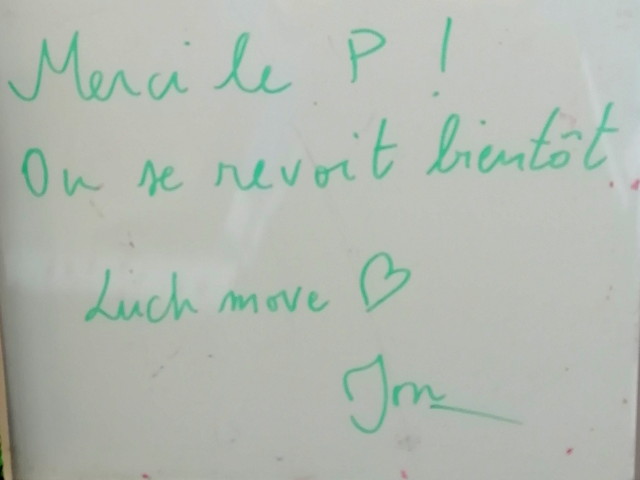 Merci le P !
On se revoit bientôt
Luch move ♡
Jon